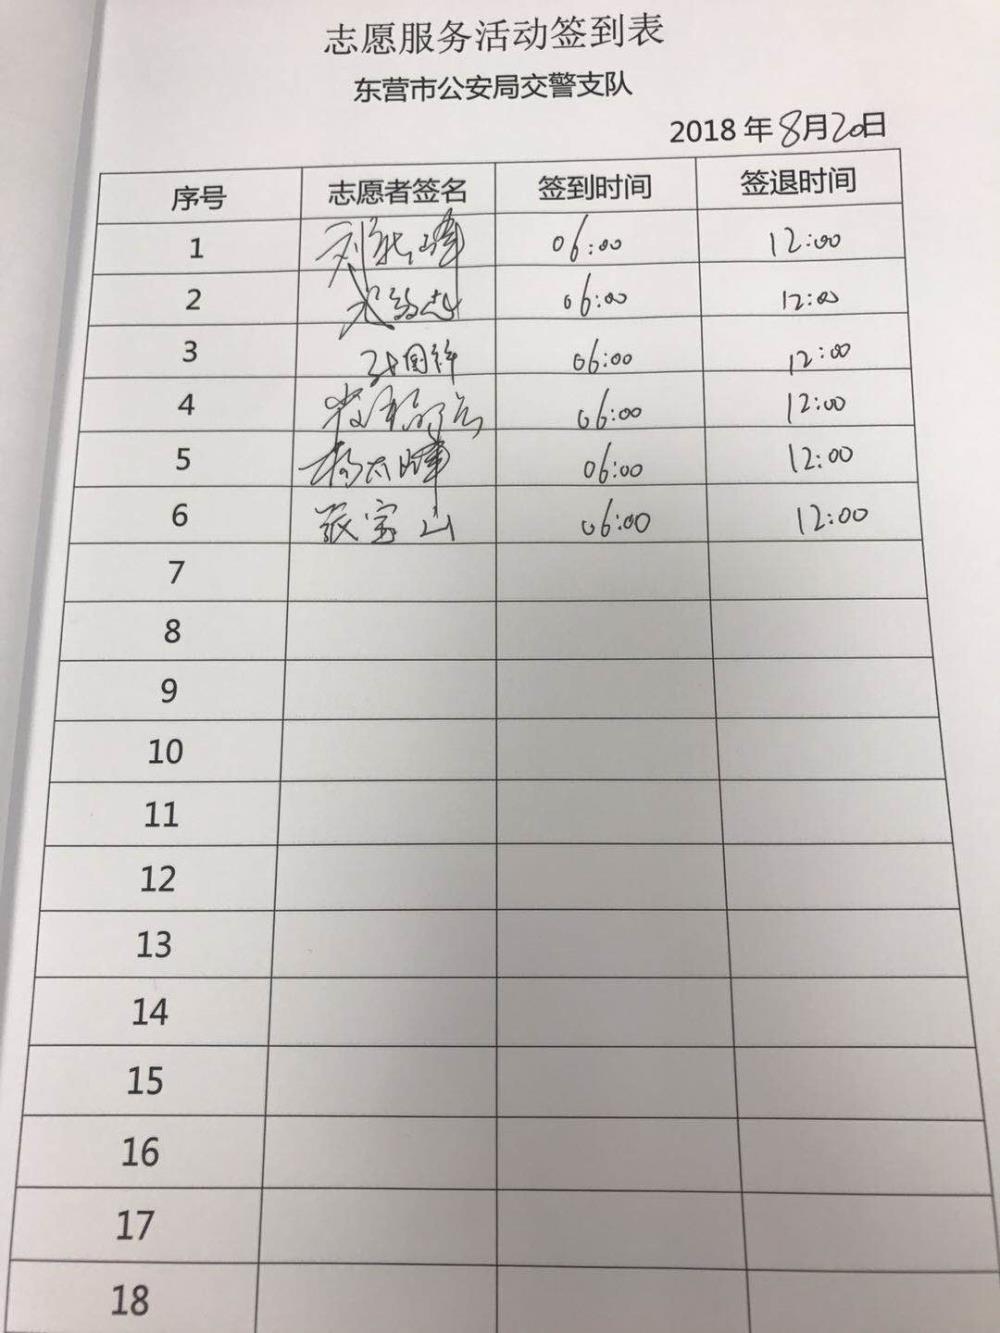 志愿服务活动签到表
东营市公安局交警支队
2018年8月20日
序号 志愿者签名 签到时间 签退时间
1 06:00 12:00
2 06:00 12:00
3 06:00 12:00
4 06:00 12:00
5 06:00 12:00
6 张宝山 06:00 12:00
7
8
9
10
11
12
13
14
15
16
17
18